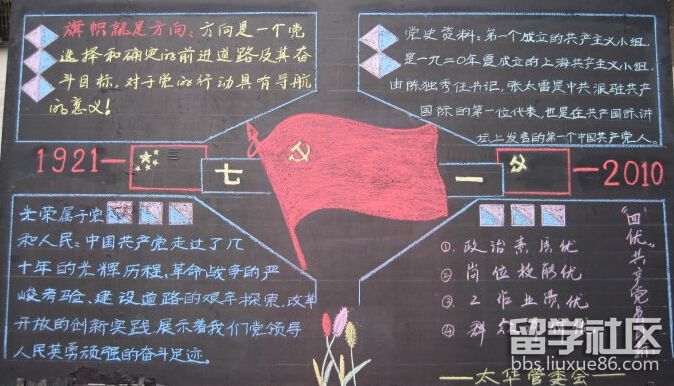 旗帜就是方向：方向是一个党
选择和确定的前进道路及其奋
斗目标，对于党的行动具有导航
的意义！
党史资料：第一个成立的共产主义小组，
是一九二〇年夏成立的上海共产主义小组，
由陈独秀任书记，张太雷是中共派驻共产
国际的第一位代表，也是在共产国际讲
坛上发言的第一个中国共产党人。
1921—
七
一
—2010
光荣属于党
和人民：中国共产党走过了几
十年的光辉历程，革命战争的严
峻考验、建设道路的艰辛探索、改革
开放的创新实践展示着我们党领导
人民英勇顽强的奋斗足迹。
"四优"共产党员
①、政治素质优
②、岗位技能优
③、工作业绩优
④、群众
—太华管委会—
留学社区
bbs.liuxue86.com